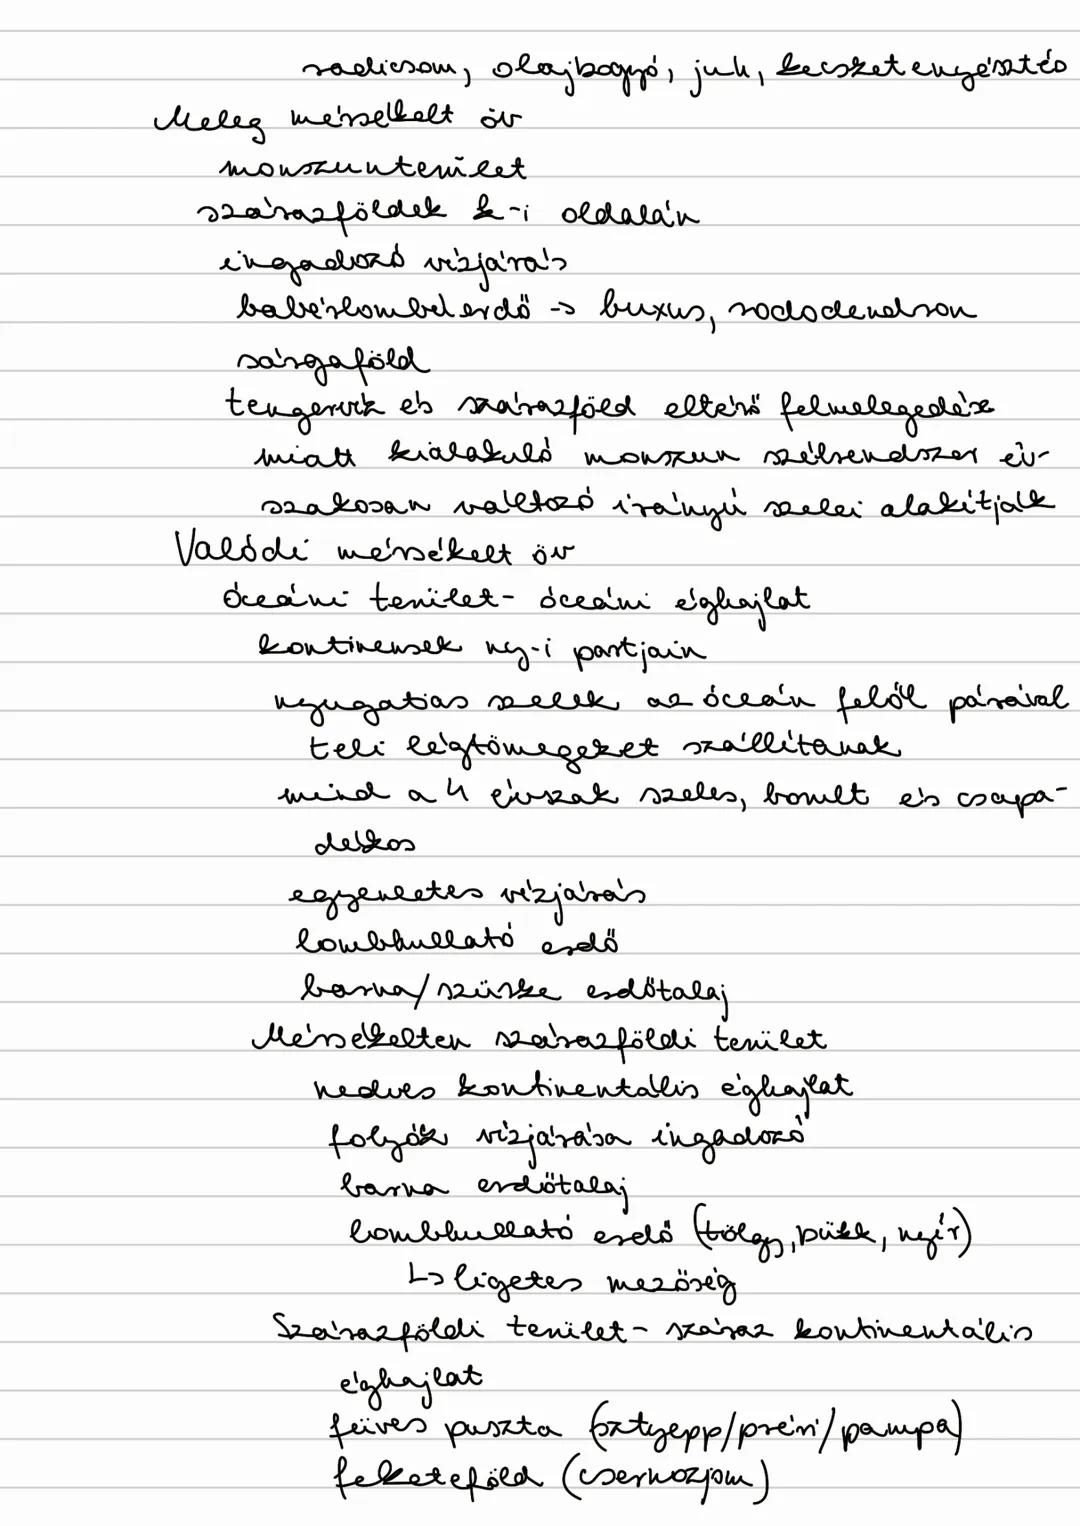 radicsom, olajbogyó, juh, kecsketenyésztés
Meleg mérsékelt öv
monszunterület
szárazföldek k-i oldalán
ingadozó vízjárás
babérlombú erdő -> buxus, rododendron
sárgaföld
tengervíz és szárazföld eltérő felmelegedése
miatt kialakuló monszun szélrendszer év-
szakosan változó irányú szelei alakítják
Valódi mérsékelt öv
óceáni terület - óceáni éghajlat
kontinensek ny-i partjain
nyugatias szelek az óceán felől párával
teli légtömegeket szállítanak
mind a 4 évszak szeles, borult és csapa-
dékos
egyenletes vízjárás
lombhullató erdő
barna/szürke erdőtalaj
Mérsékelten szárazföldi terület
nedves kontinentális éghajlat
folyók vízjárása ingadozó
barna erdőtalaj
lombhullató erdő (tölgy, bükk, nyír)
↳ ligetes mezőség
Szárazföldi terület - száraz kontinentális
éghajlat
füves puszta (sztyepp/préri/pampa)
feketeföld (csernozjom)